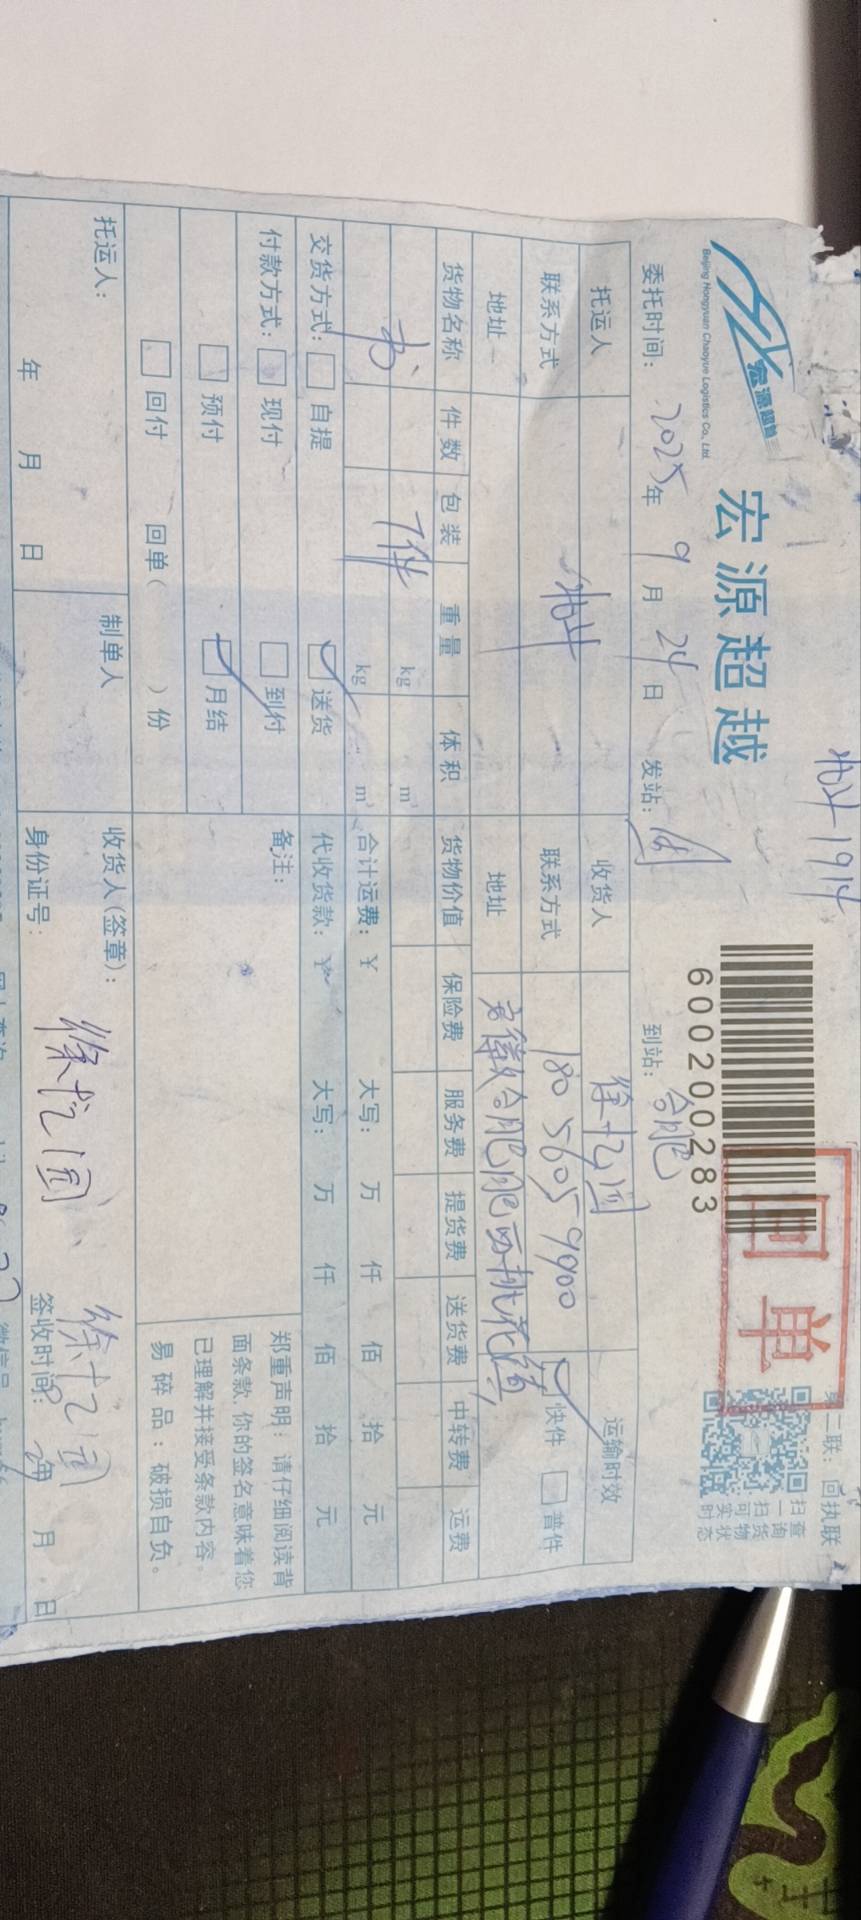 北斗1914
宏源超越
宏源超越
Beijing Hongyuan Chaoyue Logistics Co., Ltd.
600200283
回单
第二联：回执联
扫一扫可实时
查询货物状态
委托时间：2025年9月24日 发站： 到站：合肥
托运人 收货人 运输时效
联系方式 北斗 联系方式 180 5605 9900 快件 普件
地址 地址 安徽合肥肥西桃花镇
货物名称 件数 包装 重量 体积 货物价值 保险费 服务费 提货费 送货费 中转费 运费
书 7件 kg m³
kg m³ 合计运费：¥ 大写： 万 仟 佰 拾 元
交货方式： 自提 送货 代收货款：¥ 大写： 万 仟 佰 拾 元
付款方式： 现付 到付 备注：
预付 月结
回付 回单（ ）份
郑重声明：请仔细阅读背
面条款，你的签名意味着您
已理解并接受条款内容。
易碎品：破损自负。
托运人： 制单人 收货人(签章)：
年 月 日 身份证号： 签收时间： 年 月 日